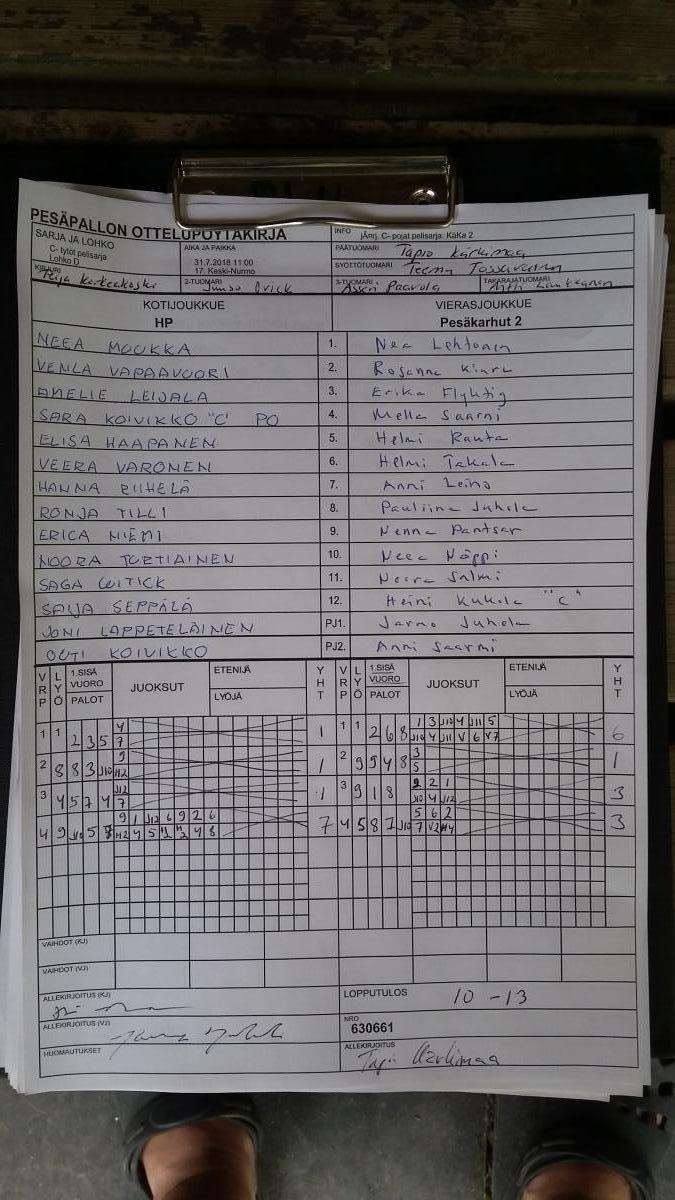 PESÄPALLON OTTELUPÖYTÄKIRJA
SARJA JA LOHKO
C- tytöt pelisarja
Lohko D
AIKA JA PAIKKA
31.7.2018 11:00
17. Keski-Nurmo
INFO jÄrj. C- pojat pelisarja: KäKa 2
PÄÄTUOMARI Tapio Kärkimaa
SYÖTTÖTUOMARI Teemu
KIRJURI
2-TUOMARI
3-TUOMARI Paavola
TAKARAJATUOMARI
KOTIJOUKKUE
HP
VIERASJOUKKUE
Pesäkarhut 2
NEEA MOUKKA 1. Nea Lehtonen
VENLA VAPAAVUORI 2. Rosanna
AMELIE LEIJALA 3. Erika
SARA KOIVIKKO "C" PO 4. Mella Saarni
ELISA HAAPANEN 5. Helmi Rauta
VEERA VARONEN 6. Helmi Takala
HANNA RIIHELÄ 7. Anni Leino
RONJA TILLI 8. Pauliina Juhola
ERICA NIEMI 9. Nenna Pantsar
NOORA TORTIAINEN 10. Neea Näppi
SAGA WITICK 11. Neera Salmi
SAIJA SEPPÄLÄ 12. Heini Kukola "C"
JONI LAPPETELÄINEN PJ1. Jarmo Juhola
OUTI KOIVIKKO PJ2. Anni Saarmi
VRP LYÖ 1.SISÄ VUORO PALOT JUOKSUT ETENIJÄ LYÖJÄ YHT VRP LYÖ 1.SISÄ VUORO PALOT JUOKSUT ETENIJÄ LYÖJÄ YHT
4 1 3 J10 4 J11 5
1 1 2 3 5 7 1 1 1 2 6 8 J10 4 J11 V 6 V7 6
9 3
2 8 8 3 J10 H2 1 2 9 9 4 8 5 1
J12 9 2 1
3 4 5 7 4 7 1 3 9 1 8 J10 4 J12 3
9 1 J12 6 9 2 6 5 6 2
4 9 J10 5 7 4 5 4 8 7 4 5 8 7 J10 7 V2 H4 3
VAIHDOT (KJ)
VAIHDOT (VJ)
ALLEKIRJOITUS (KJ)
LOPPUTULOS 10 - 13
ALLEKIRJOITUS (VJ)
NRO
630661
HUOMAUTUKSET
ALLEKIRJOITUS